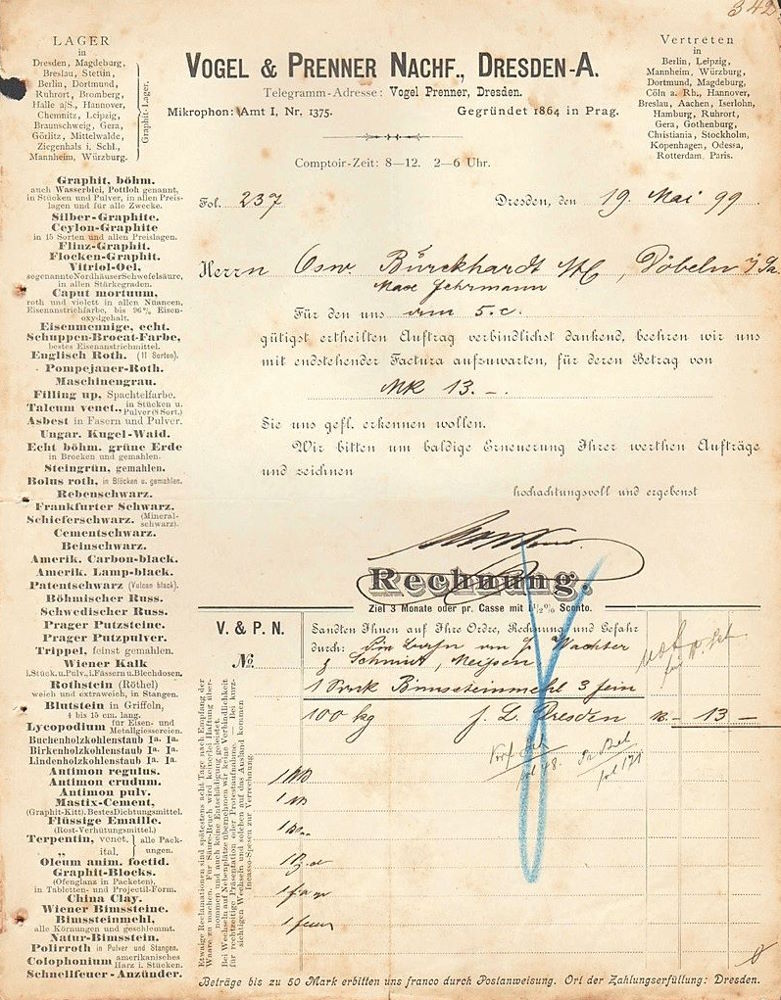 342
LAGER
in
Dresden, Magdeburg,
Breslau, Stettin,
Berlin, Dortmund,
Ruhrort, Bromberg,
Halle a/S., Hannover,
Chemnitz, Leipzig,
Braunschweig, Gera,
Görlitz, Mittelwalde,
Ziegenhals i. Schl.,
Mannheim, Würzburg.
Graphit-Lager.
VOGEL & PRENNER NACHF., DRESDEN-A.
Telegramm-Adresse: Vogel Prenner, Dresden.
Mikrophon: Amt I, Nr. 1375.
Gegründet 1864 in Prag.
Comptoir-Zeit: 8—12. 2—6 Uhr.
Vertreten
in
Berlin, Leipzig,
Mannheim, Würzburg,
Dortmund, Magdeburg,
Cöln a. Rh., Hannover,
Breslau, Aachen, Iserlohn,
Hamburg, Ruhrort,
Gera, Gothenburg,
Christiania, Stockholm,
Kopenhagen, Odessa,
Rotterdam, Paris.
Graphit, böhm.
auch Wasserblei, Pottloh genannt,
in Stücken und Pulver, in allen Preis-
lagen und für alle Zwecke.
Silber-Graphite.
Ceylon-Graphite
in 15 Sorten und allen Preislagen.
Flinz-Graphit.
Flocken-Graphit.
Vitriol-Oel,
sogenannte Nordhäuser Schwefelsäure,
in allen Stärkegraden.
Caput mortuum,
roth und violett in allen Nuancen,
Eisenanstrichfarbe, bis 96% Eisen-
oxydgehalt.
Eisenmennige, echt.
Schuppen-Brocat-Farbe,
bestes Eisenanstrichmittel.
Englisch Roth. (11 Sorten).
Pompejaner-Roth.
Maschinengrau.
Filling up, Spachtelfarbe.
Talcum venet., in Stücken u. Pulver (8 Sort.)
Asbest in Fasern und Pulver.
Ungar. Kugel-Waid.
Echt böhm. grüne Erde
in Brocken und gemahlen.
Steingrün, gemahlen.
Bolus roth, in Blöcken u. gemahlen.
Rebenschwarz.
Frankfurter Schwarz.
Schieferschwarz. (Mineral-schwarz).
Cementschwarz.
Beinschwarz.
Amerik. Carbon-black.
Amerik. Lamp-black.
Patentschwarz (Vulcan black).
Böhmischer Russ.
Schwedischer Russ.
Prager Putzsteine.
Prager Putzpulver.
Trippel, feinst gemahlen.
Wiener Kalk
i. Stück. u. Pulv., i. Fässern u. Blechdosen.
Rothstein (Röthel)
weich und extraweich, in Stangen.
Blutstein in Griffeln,
4 bis 15 cm. lang.
Lycopodium für Eisen- und Metallgiessereien.
Buchenholzkohlenstaub Ia. Ia.
Birkenholzkohlenstaub Ia. Ia.
Lindenholzkohlenstaub Ia. Ia.
Antimon regulus.
Antimon crudum.
Antimon pulv.
Mastix-Cement,
(Graphit-Kitt). Bestes Dichtungsmittel.
Flüssige Emaille.
(Rost-Verhütungsmittel.)
Terpentin, venet. alle Pack-
„ ital. ungen.
Oleum anim. foetid.
Graphit-Blocks.
(Ofenglanz in Packeten),
in Tabletten- und Projectil-Form.
China Clay.
Wiener Bimssteine.
Bimssteinmehl,
alle Körnungen und geschlemmt.
Natur-Bimsstein.
Polirroth in Pulver und Stangen.
Colophonium amerikanisches Harz i. Stücken.
Schnellfeuer-Anzünder.
Fol. 237
Dresden, den 19. Mai 99
Herrn Osw. Bürckhardt, Döbeln i/Sa.
Max Jehrmann
Für den uns vom 5. c.
gütigst ertheilten Auftrag verbindlichst dankend, beehren wir uns
mit endstehender Factura aufzuwarten, für deren Betrag von
MK 13. -.
Sie uns gefl. erkennen wollen.
Wir bitten um baldige Erneuerung Ihrer werthen Aufträge
und zeichnen
hochachtungsvoll und ergebenst
Rechnung.
Ziel 3 Monate oder pr. Casse mit 1½% Sconto.
V. & P. N.
No.
Sandten Ihnen auf Ihre Ordre, Rechnung und Gefahr
durch: Wachter
& Schmidt, Meißen
1 Bimssteinmehl 3 fein
100 kg f. L. Dresden 13 —
Etwaige Reclamationen sind spätestens acht Tage nach Empfang der
Waare zu machen. Für Säure-Bruch wird keinerlei Haftung über-
nommen und auch keine Entschädigung geleistet.
Bei Wechseln auf Nebenplätze übernehmen wir keine Verbindlichkeit
für rechtzeitige Präsentation oder Protestaufnahme. — Bei kurz-
sichtigen Wechseln und solchen auf das Ausland kommen
Incasso-Spesen zur Verrechnung.
Beträge bis zu 50 Mark erbitten uns franco durch Postanweisung. Ort der Zahlungserfüllung: Dresden.